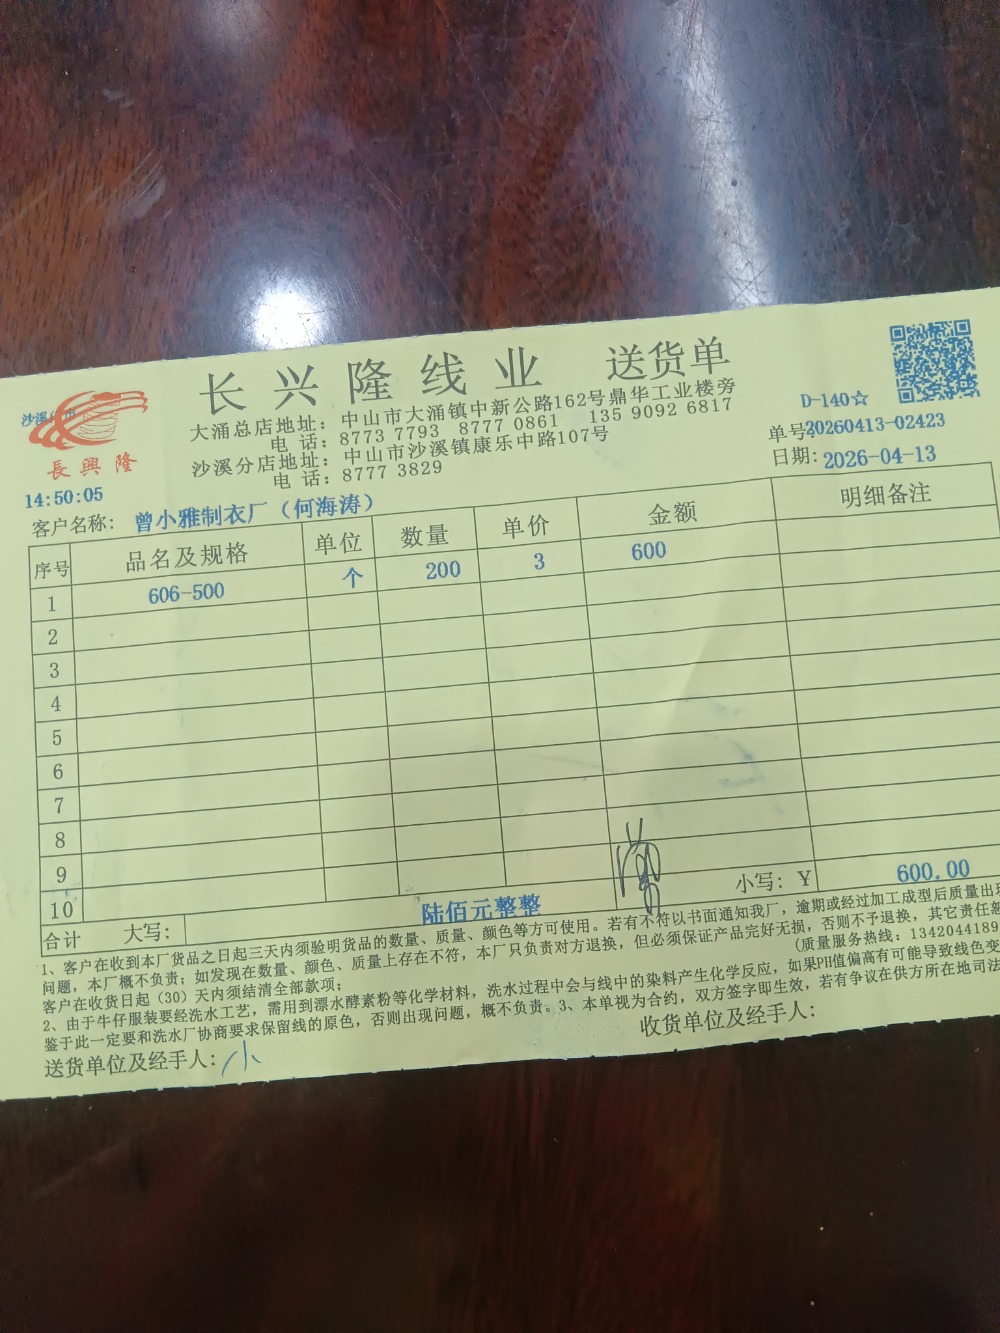 长兴隆线业 送货单
大涌总店地址：中山市大涌镇中新公路162号鼎华工业楼旁
电 话：8773 7793 8777 0861 135 9092 6817
沙溪分店地址：中山市沙溪镇康乐中路107号
电 话：8777 3829
沙溪
長興隆
14:50:05
D-140☆
单号:20260413-02423
日期:2026-04-13
客户名称：曾小雅制衣厂（何海涛）
序号 品名及规格 单位 数量 单价 金额 明细备注
1 606-500 个 200 3 600
2
3
4
5
6
7
8
9
10
合计 大写： 陆佰元整整 小写：Y 600.00
1、客户在收到本厂货品之日起三天内须验明货品的数量、质量、颜色等方可使用。若有不符以书面通知我厂，逾期或经过加工成型后质量出现
问题，本厂概不负责；如发现在数量、颜色、质量上存在不符，本厂只负责对方退换，但必须保证产品完好无损，否则不予退换，其它责任
客户在收货日起（30）天内须结清全部款项； （质量服务热线：1342044189
2、由于牛仔服装要经洗水工艺，需用到漂水酵素粉等化学材料，洗水过程中会与线中的染料产生化学反应，如果PH值偏高有可能导致线色变
鉴于此一定要和洗水厂协商要求保留线的原色，否则出现问题，概不负责。3、本单视为合约，双方签字即生效，若有争议在供方所在地司法
送货单位及经手人：小 收货单位及经手人：